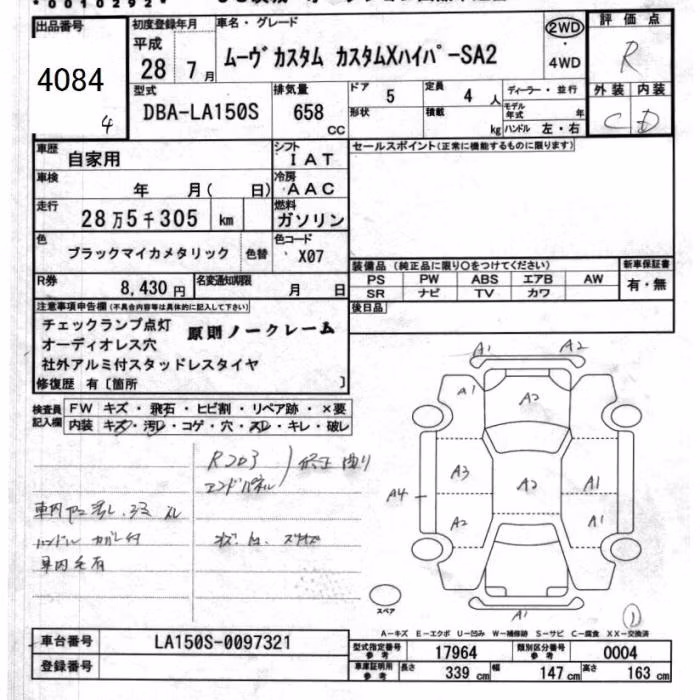 0010292
出品番号 初度登録年月 車名・グレード 2WD 評価点
平成
4084 28 7月 ムーヴカスタム カスタムXハイパーSA2 ・ R
4WD
4 型式 排気量 ドア 5 定員 4人 ディーラー・並行 外装 内装
DBA-LA150S 658 cc 形状 積載 kg モデル年式 年 C D
ハンドル 左・右
車歴 自家用 シフト IAT セールスポイント(正常に機能するものに限ります)
車検 年 月( 日) 冷房 AAC
走行 28万5千305 km 燃料 ガソリン
色 ブラックマイカメタリック 色替 色コード X07
装備品 (純正品に限り○をつけてください) 新車保証書
R券 8,430円 名変通知期限 月 日 PS PW ABS エアB AW 有・無
SR ナビ TV カワ
注意事項申告欄(不具合内容等は具体的に記入して下さい) 後日品
チェックランプ点灯 原則ノークレーム
オーディオレス穴
社外アルミ付スタッドレスタイヤ
修復歴 有〔箇所 〕
検査員記入欄 FW キズ・飛石・ヒビ割・リペア跡・×要
内装 キズ・汚レ・コゲ・穴・スレ・キレ・破レ
A1 A2
A1 A2
A3 A2 A1
A4
A2 A1
エンドパネル
A1
スペア
A-キズ E-エクボ U-凹み W-補修跡 S-サビ C-腐食 XX-交換済
車台番号 LA150S-0097321 型式指定番号 参考 17964 類別区分番号 参考 0004
登録番号 車庫証明用 参考 長さ 339cm 幅 147cm 高さ 163cm